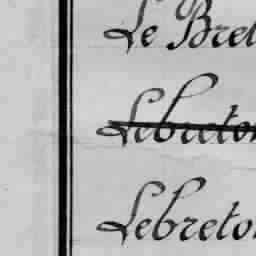 Le Bret
Lebreton
Lebreton